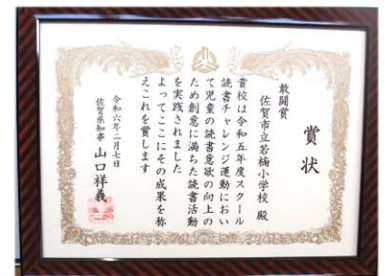 賞状
敢闘賞
佐賀市立若楠小学校 殿
貴校は令和五年度スクール
読書チャレンジ運動におい
て児童の読書意欲の向上の
ため創意に満ちた読書活動
を実践されました
よってここにその成果を称
えこれを賞します
令和六年二月七日
佐賀県知事 山口祥義